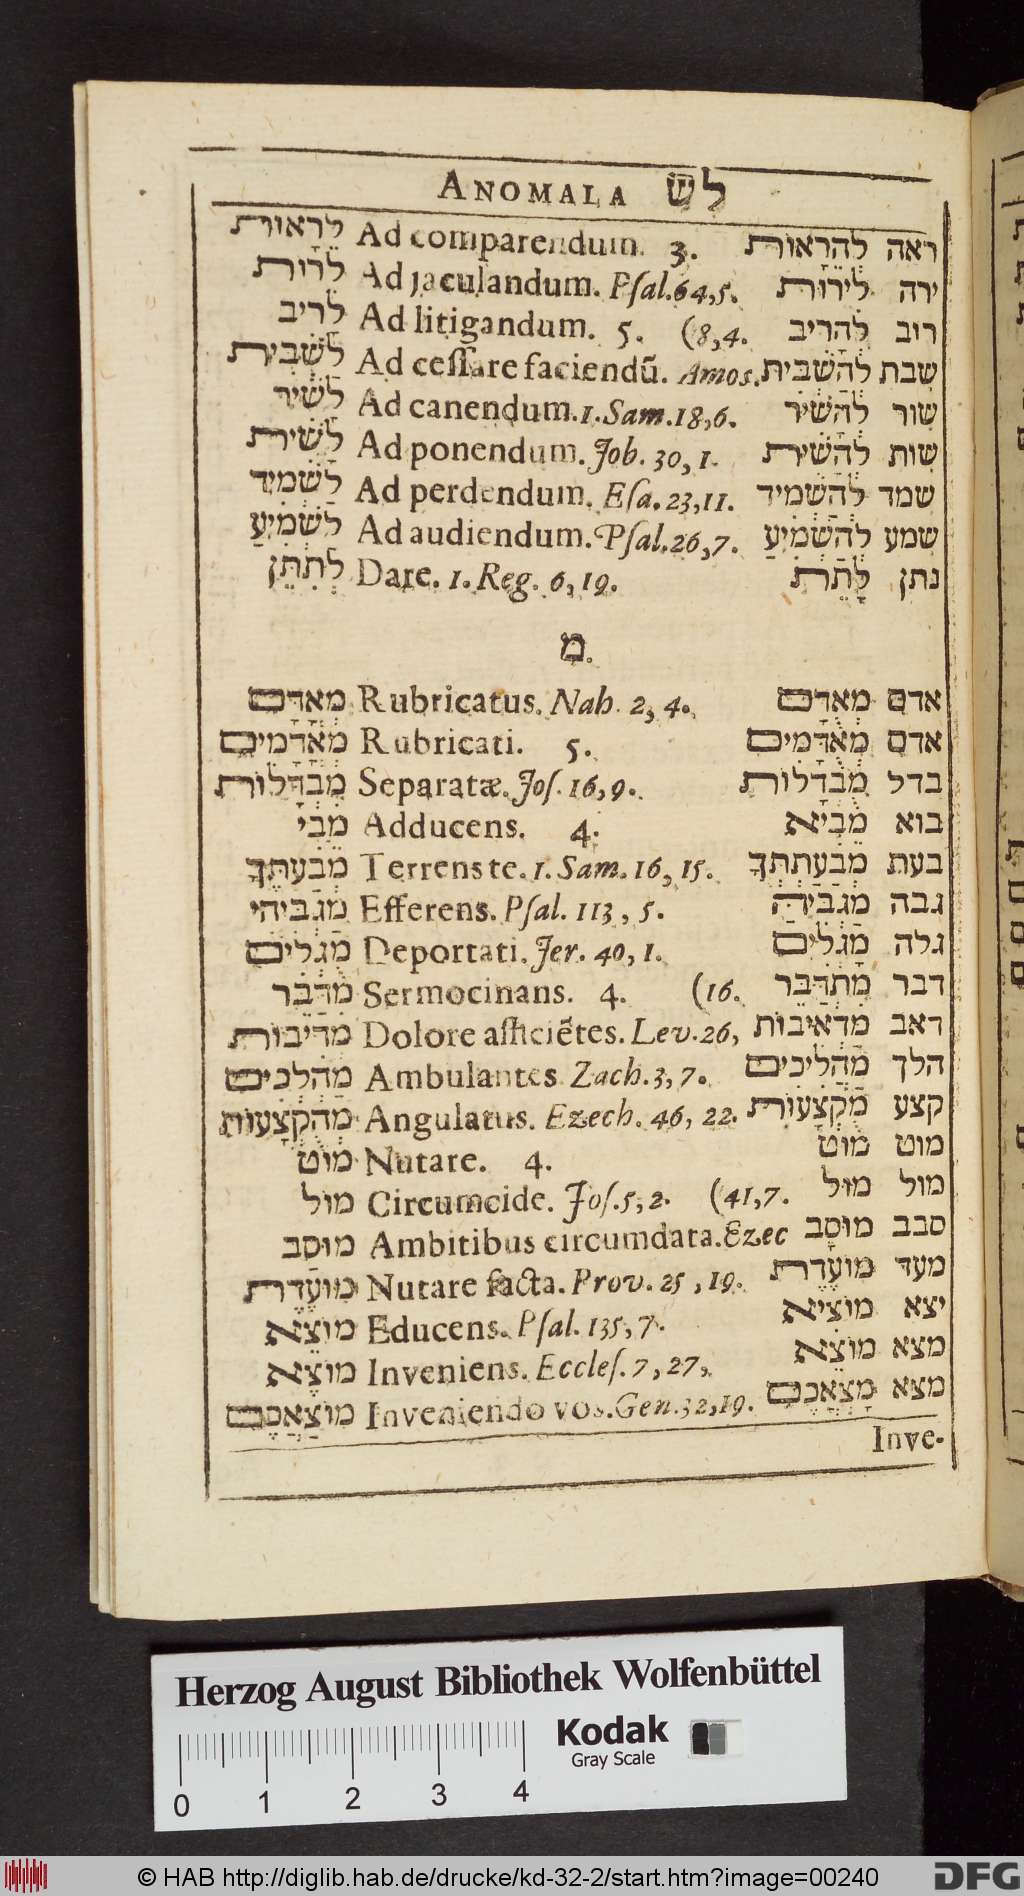 ANOMALA לש
לֵרָאוֹת Ad comparendum. 3. לְהֵרָאוֹת ראה
לֵרוֹת Ad jaculandum. Psal.64,5. לִירוֹת ירה
לָרִיב Ad litigandum. 5. (8,4. לְהָרִיב רוב
לַשְׁבִּית Ad cessare faciendũ. Amos. לְהַשְׁבִּית שבת
לָשִׁיר Ad canendum. 1. Sam. 18,6. לְהָשִׁיר שור
לָשִׁית Ad ponendum. Job. 30,1. לְהָשִׁית שות
לַשְׁמִיד Ad perdendum. Esa. 23,11. לְהַשְׁמִיד שמד
לַשְׁמִיעַ Ad audiendum. Psal. 26,7. לְהַשְׁמִיעַ שמע
לְתִתֵּן Dare. 1. Reg. 6,19. לָתֵת נתן
מ.
מְאָדָּם Rubricatus. Nah. 2, 4. מְאָדָּם אדם
מְאָדָּמִים Rubricati. 5. מְאֻדָּמִים אדם
מִבְדָּלוֹת Separatæ. Jos. 16,9. מֻבְדָּלוֹת בדל
מֵבִי Adducens. 4. מֵבִיא בוא
מְבַעִתֶּךָ Terrens te. 1. Sam. 16, 15. מְבַעַתְתְּךָ בעת
מַגְבִּיהִי Efferens. Psal. 113, 5. מַגְבִּיהַּ גבה
מֻגְלִים Deportati. Jer. 40, 1. מָגְלִים גלה
מִדַּבֵּר Sermocinans. 4. (16. מִתְדַּבֵּר דבר
מְדִיבוֹת Dolore afficiẽtes. Lev. 26, מַדְאִיבוֹת דאב
מַהְלְכִים Ambulantes Zach. 3, 7. מַהֲלִיכִים הלך
מְהֻקְצָעוֹת Angulatus. Ezech. 46, 22. מֻקְצָעוֹת קצע
מוֹט Nutare. 4. מוּט מוט
מוֹל Circumcide. Jos. 5, 2. (41,7. מוּל מול
מוּסַב Ambitibus circumdata. Ezec מוּסָב סבב
מוּעֶדֶת Nutare facta. Prov. 25, 19. מוֹעֶדֶת מעד
מוֹצֵא Educens. Psal. 135, 7. מוֹצִיא יצא
מוֹצֶא Inveniens. Eccles. 7, 27, מוֹצֵא מצא
מוֹצַאֲכֶם Inveniendo vos. Gen. 32,19. מָצְאָכֶם מצא
Inve-
Herzog August Bibliothek Wolfenbüttel
Kodak
Gray Scale
0 1 2 3 4
© HAB http://diglib.hab.de/drucke/kd-32-2/start.htm?image=00240
DFG